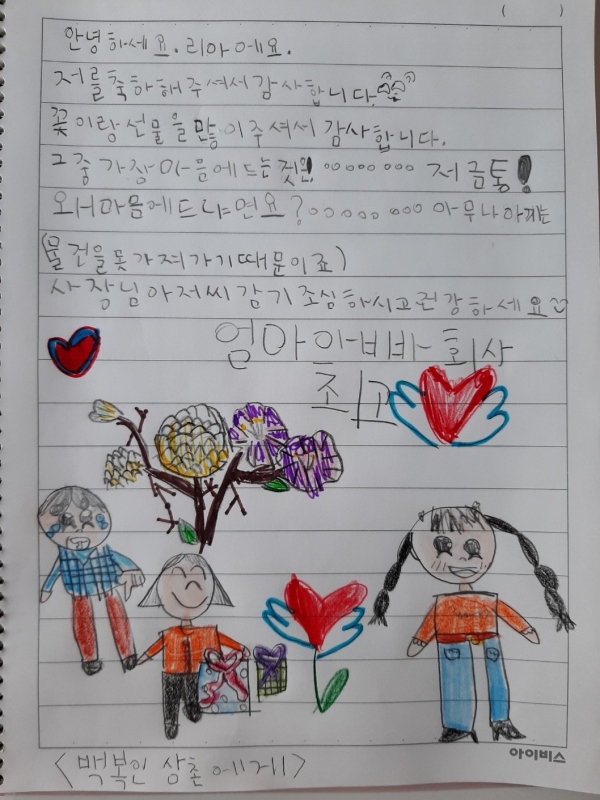 (          )
안녕하세요. 리아에요.
저를축하해주셔서감사합니다.
꽃이랑선물을많이주셔서감사합니다.
그중가장마음에드는것은, ○○○○○ ○○○ 저금통!
왜마음에드냐면요?○○○○○ ○○○ 아무나아끼는
(물건을못가져가기때문이죠)
사장님아저씨감기조심하시고건강하세요
엄마아빠회사
최고
아이비스
<백복인 삼촌에게>